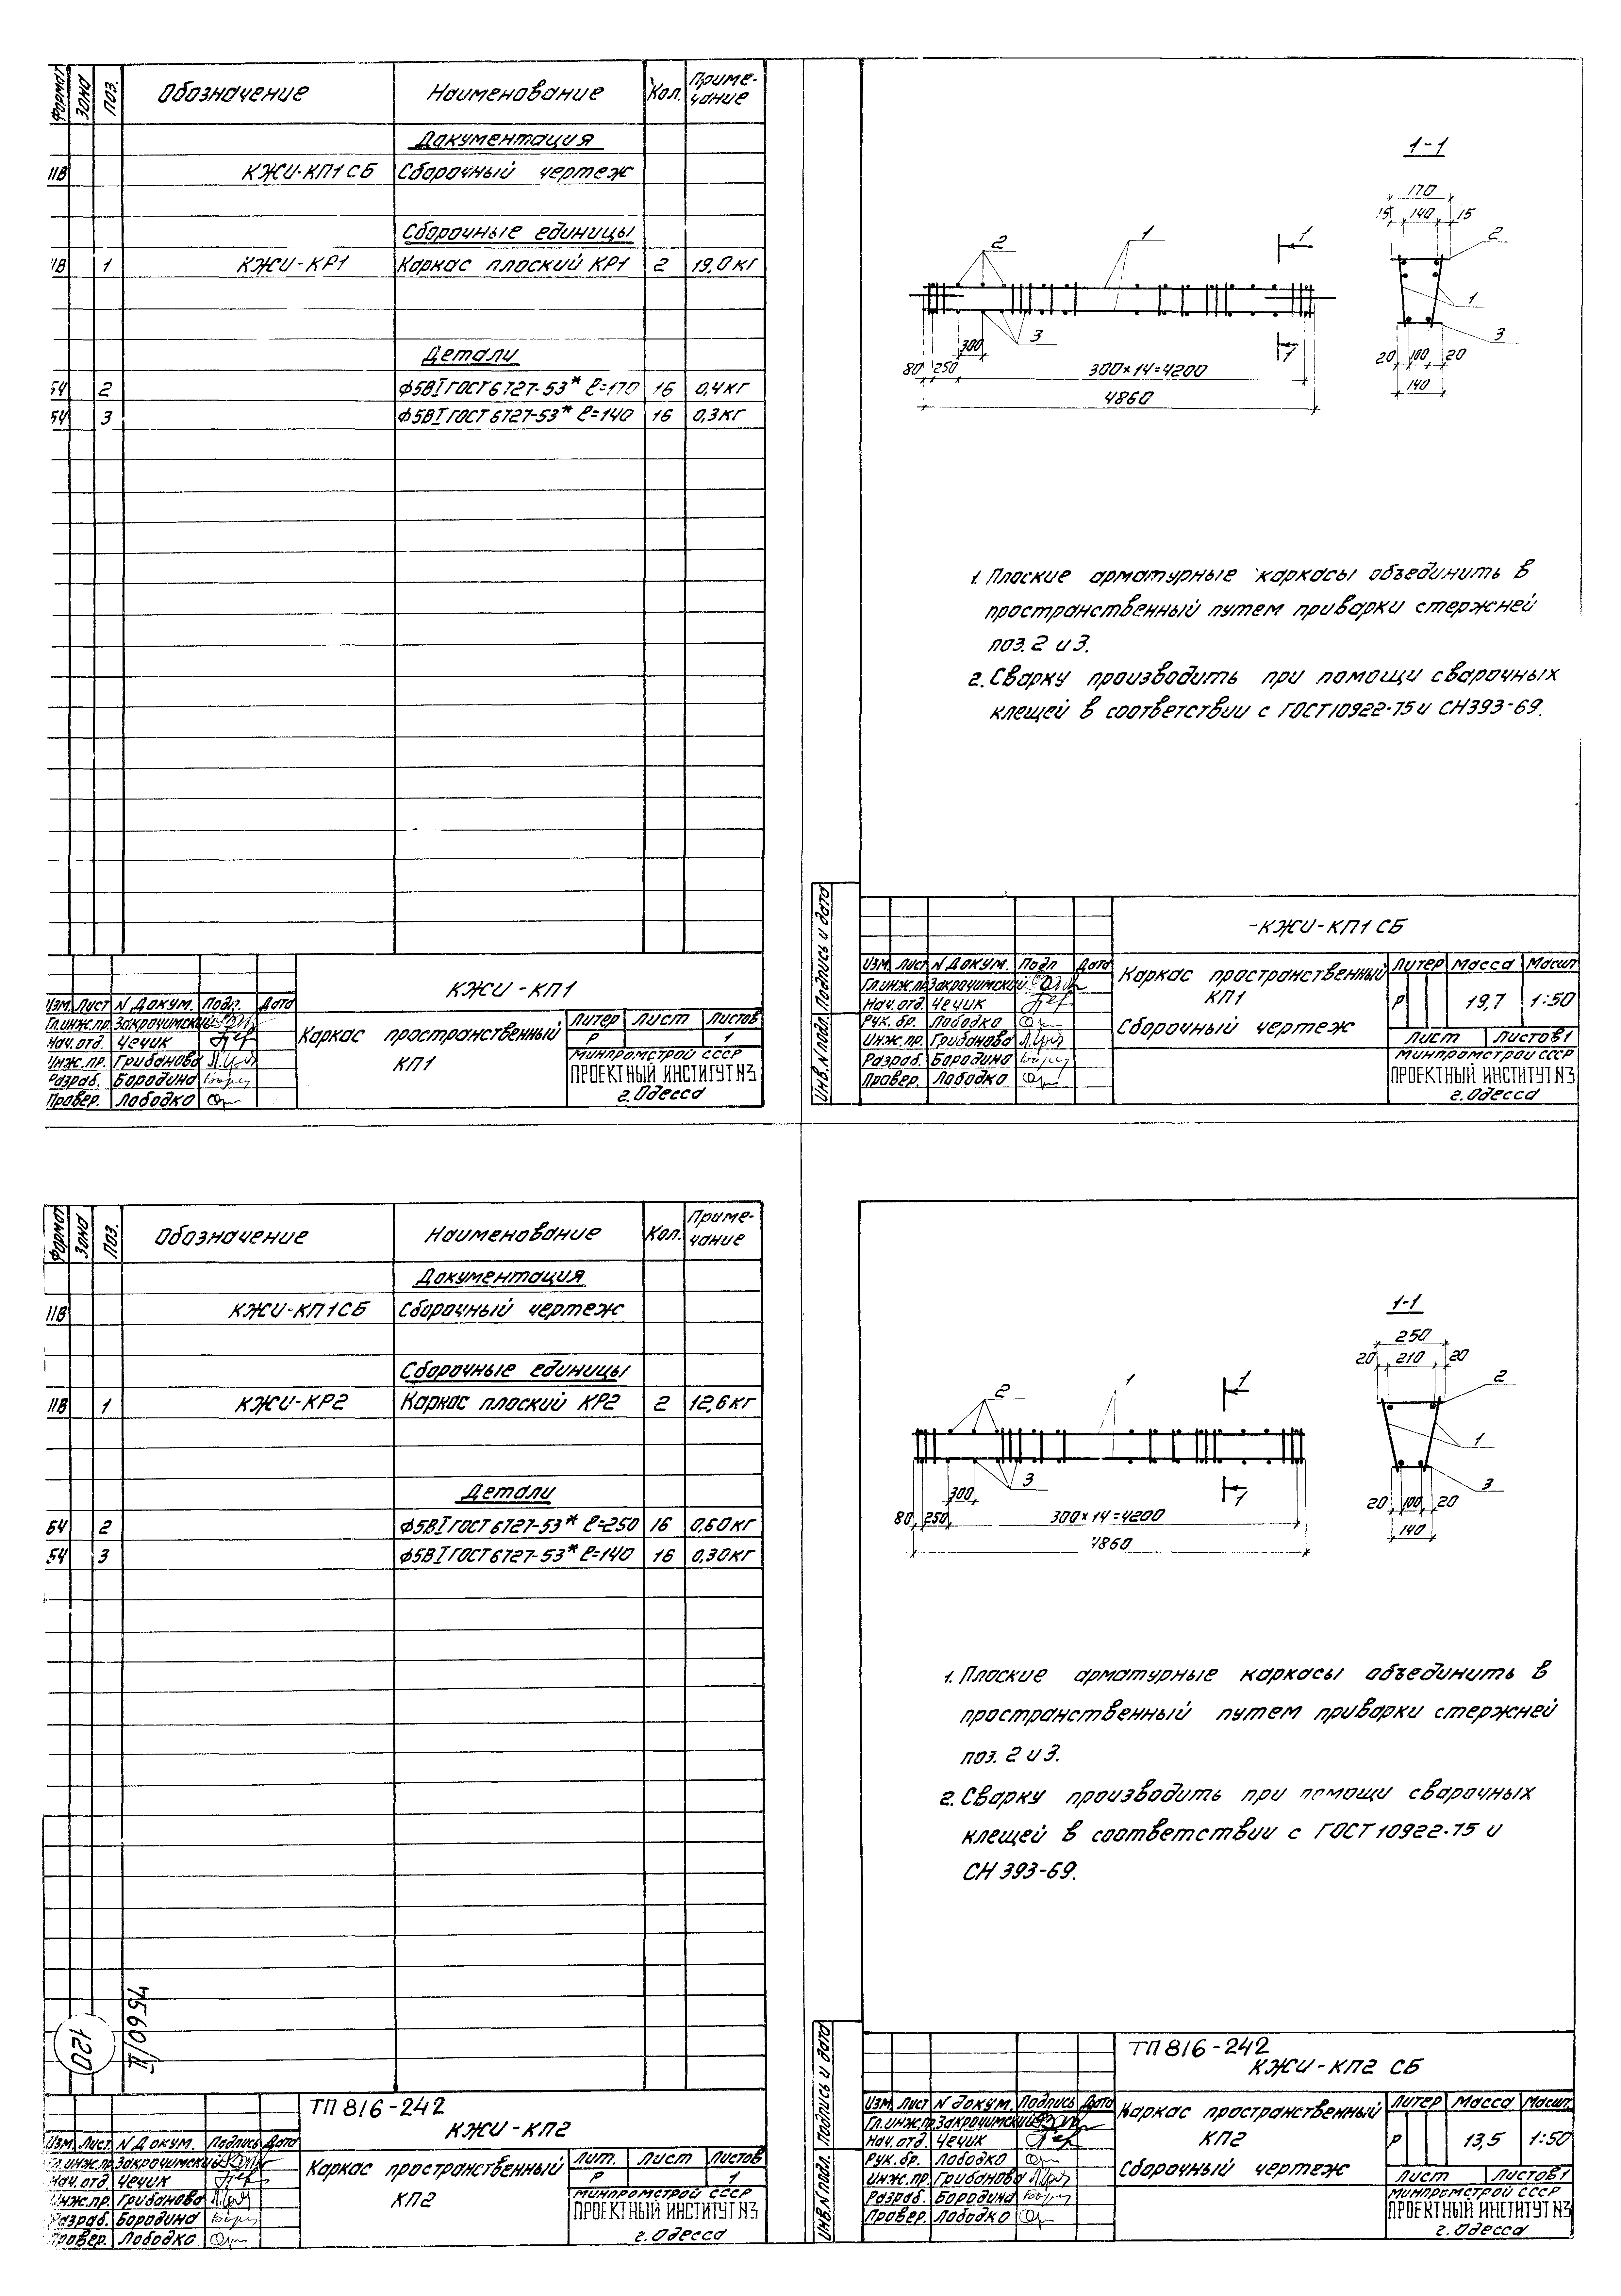 Формат Зона Поз. Обозначение Наименование Кол. Приме-
чание
Документация
11В КЖИ-КП1СБ Сборочный чертеж
Сборочные единицы
11В 1 КЖИ-КР1 Каркас плоский КР1 2 19,0кг
Детали
2 Ф5ВI ГОСТ 6727-53* ℓ=170 16 0,4кг
3 Ф5ВI ГОСТ 6727-53* ℓ=140 16 0,3кг
КЖИ-КП1
Изм. Лист N Докум. Подп. Дата
Гл.инж.пр. Закрочимский
Нач.отд. Чечик
Инж.пр. Грибанова
Разраб. Бородина
Провер. Лободко
Каркас пространственный
КП1
Литер Лист Листов
Р 1
Минпромстрой СССР
ПРОЕКТНЫЙ ИНСТИТУТ N3
г.Одесса
1-1
170
15 140 15
2
1
3
20 100 20
140
2 1 1
3
300 1
80 250 300×14=4200
4860
1. Плоские арматурные каркасы объединить в
пространственный путем приварки стержней
поз. 2 и 3.
2. Сварку производить при помощи сварочных
клещей в соответствии с ГОСТ10922-75 и СН393-69.
Инв.N подл. Подпись и дата
-КЖИ-КП1 СБ
Изм Лист N Докум. Подп Дата
Гл.инж.пр. Закрочимский
Нач.отд. Чечик
Рук. бр. Лободко
Инж.пр. Грибанова
Разраб. Бородина
Провер. Лободко
Каркас пространственный
КП1
Сборочный чертеж
Литер Масса Масшт
Р 19,7 1:50
Лист Листов1
Минпромстрой СССР
ПРОЕКТНЫЙ ИНСТИТУТ N3
г.Одесса
Формат Зона Поз. Обозначение Наименование Кол. Приме-
чание
Документация
11В КЖИ-КП1СБ Сборочный чертеж
Сборочные единицы
11В 1 КЖИ-КР2 Каркас плоский КР2 2 12,6кг
Детали
БЧ 2 Ф5ВI ГОСТ 6727-53* ℓ=250 16 0,60кг
БЧ 3 Ф5ВI ГОСТ 6727-53* ℓ=140 16 0,30кг
7560/II
120
ТП 816-242
КЖИ-КП2
Изм. Лист N Докум. Подпись Дата
Гл.инж.пр. Закрочимский
Нач.отд. Чечик
Инж.пр. Грибанова
Разраб. Бородина
Провер. Лободко
Каркас пространственный
КП2
Лит. Лист Листов
Р 1
Минпромстрой СССР
ПРОЕКТНЫЙ ИНСТИТУТ N3
г.Одесса
1-1
250
20 210 20
2
1
3
20 100 20
140
2 1 1
3
300 1
80 250 300×14=4200
4860
1. Плоские арматурные каркасы объединить в
пространственный путем приварки стержней
поз. 2 и 3.
2. Сварку производить при помощи сварочных
клещей в соответствии с ГОСТ 10922-75 и
СН 393-69.
Инв.N подл. Подпись и дата
ТП 816-242
КЖИ-КП2 СБ
Изм Лист N докум. Подпись Дата
Гл.инж.пр. Закрочимский
Нач.отд. Чечик
Рук. бр. Лободко
Инж.пр. Грибанова
Разраб. Бородина
Провер. Лободко
Каркас пространственный
КП2
Сборочный чертеж
Литер Масса Масшт.
Р 13,5 1:50
Лист Листов1
Минпромстрой СССР
ПРОЕКТНЫЙ ИНСТИТУТ N3
г.Одесса